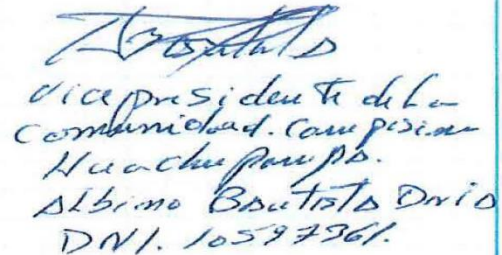 Vicepresidente de la
Comunidad. Campesina
Huachupampa.
Albino Bautista David
DNI. 10597361.